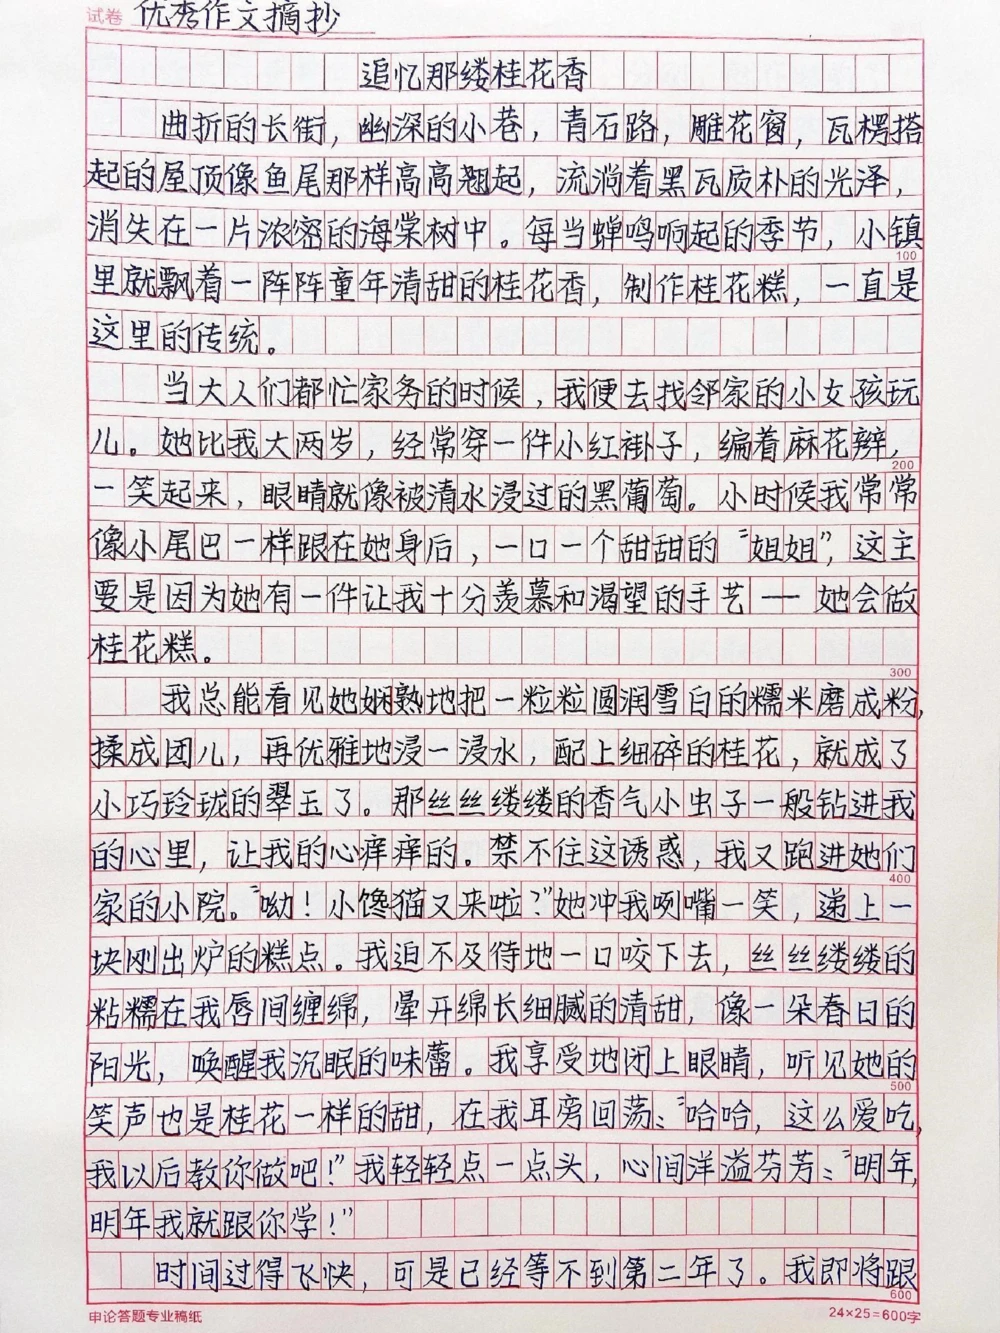 试卷 优秀作文摘抄
追忆那缕桂花香
曲折的长街，幽深的小巷，青石路，雕花窗，瓦楞搭
起的屋顶像鱼尾那样高高翘起，流淌着黑瓦质朴的光泽，
消失在一片浓密的海棠树中。每当蝉鸣响起的季节，小镇
100
里就飘着一阵阵童年清甜的桂花香，制作桂花糕，一直是
这里的传统。
当大人们都忙家务的时候，我便去找邻家的小女孩玩
儿。她比我大两岁，经常穿一件小红褂子，编着麻花辫，
200
一笑起来，眼睛就像被清水浸过的黑葡萄。小时候我常常
像小尾巴一样跟在她身后，一口一个甜甜的“姐姐”，这主
要是因为她有一件让我十分羡慕和渴望的手艺——她会做
桂花糕。
300
我总能看见她娴熟地把一粒粒圆润雪白的糯米磨成粉，
揉成团儿，再优雅地浸一浸水，配上细碎的桂花，就成了
小巧玲珑的翠玉了。那丝丝缕缕的香气小虫子一般钻进我
的心里，让我的心痒痒的。禁不住这诱惑，我又跑进她们
400
家的小院。“呦！小馋猫又来啦？”她冲我咧嘴一笑，递上一
块刚出炉的糕点。我迫不及待地一口咬下去，丝丝缕缕的
粘糯在我唇间缠绵，晕开绵长细腻的清甜，像一朵春日的
阳光，唤醒我沉眠的味蕾。我享受地闭上眼睛，听见她的
500
笑声也是桂花一样的甜，在我耳旁回荡：“哈哈，这么爱吃，
我以后教你做吧！”我轻轻点一点头，心间洋溢芬芳：“明年，
明年我就跟你学！”
时间过得飞快，可是已经等不到第二年了。我即将跟
600
申论答题专业稿纸 24×25=600字